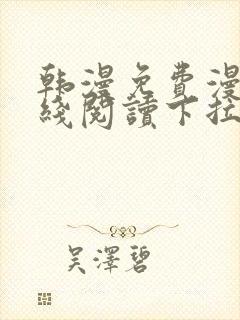 韩漫免费漫
线阅读下拉
吴泽碧